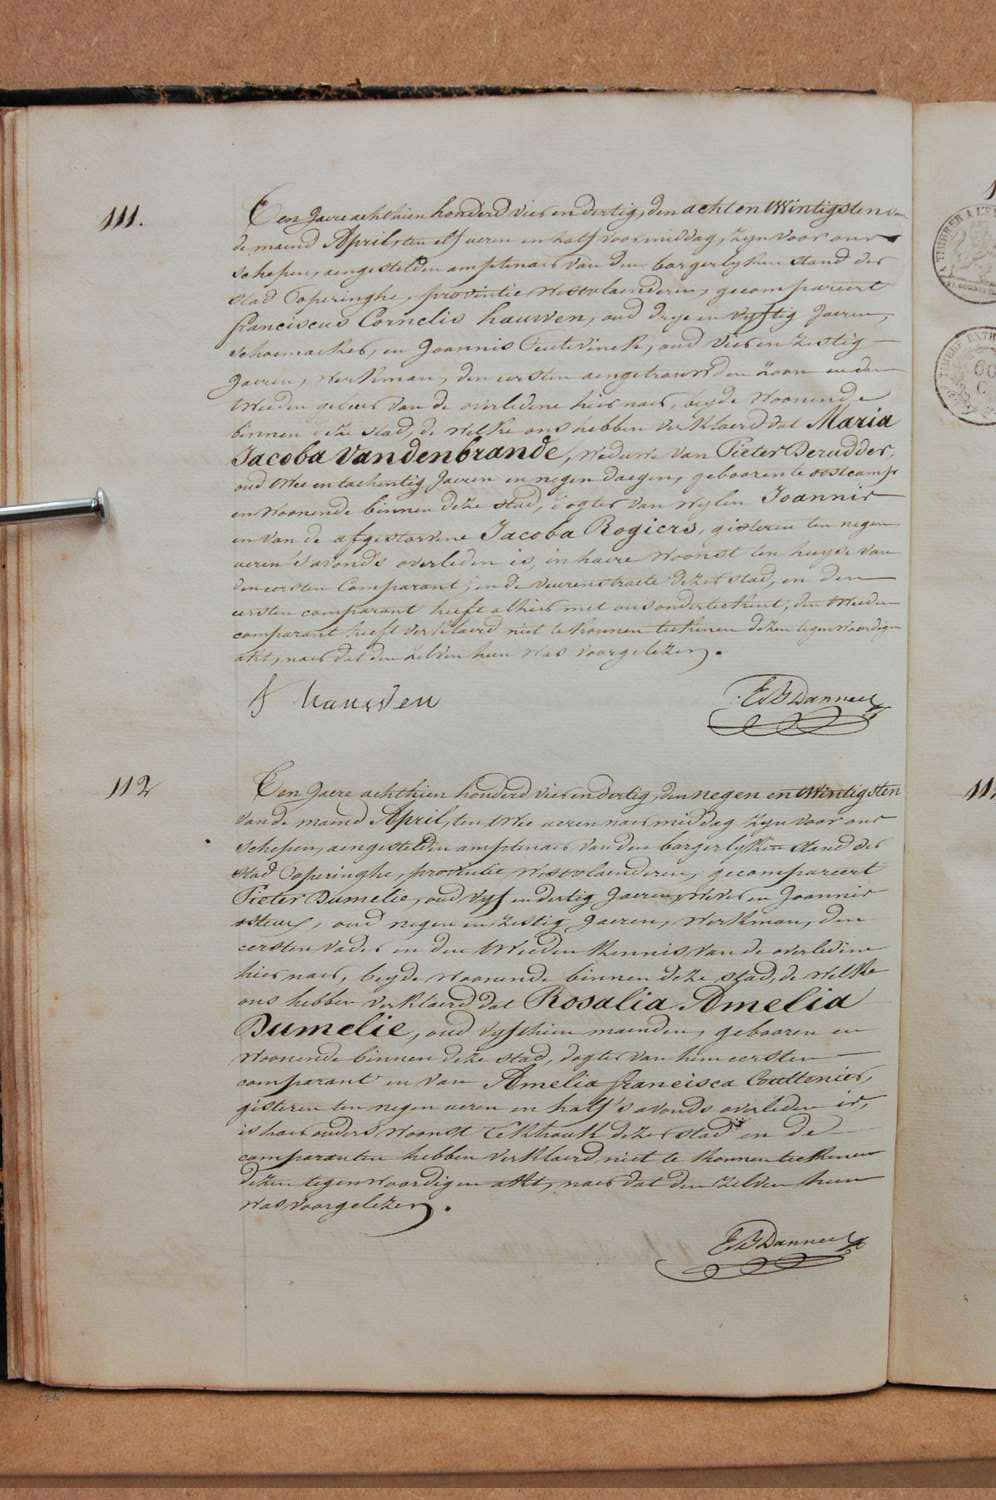 111.
Een Jaere achthien honderd vier en dertig, den acht en twintigsten van
de maend April, ten elf ueren en half voormiddag, zyn voor ons
schepen, aengestelden amptenaer van den borgerlyken stand der
stad Poperinghe, provintie Westvlaenderen, gecompareert
franciscus Cornelis hauwen, oud drye en vyftig Jaeren,
schoemaeker, en Joannis Pentevinck, oud vier en zestig
Jaeren, werkman, den eersten aengetrouwden zoon en den
tweeden gebuer van de overledene hier naer, beyde woonende
binnen deze stad, de welke ons hebben verklaerd dat Maria
Jacoba Vandenbrande, weduwe van Pieter Derudder,
oud twee en tachentig Jaeren en negen daegen, gebooren te oostcamp
en woonende binnen deze stad, dogter van wylen Joannis
en van de afgestorvene Jacoba Rogiers, gisteren ten negen
ueren s'avonds overleden is, in haere woonst ten huyse van
den eersten Comparant, in de veurenstraete dezer stad, en den
eersten comparant heeft alhier met ons onderteekent, den tweeden
comparant heeft verklaerd niet te konnen teekenen dezen tegenwoordigen
akt, naer dat den zelven hun was voorgelezen.
f hauwen
E B Danneel
112
Een Jaere achthien honderd vier en dertig, den negen en twintigsten
van de maend April, ten twee ueren naer middag zyn voor ons
schepen, aengestelden amptenaer van den borgerlyken stand der
stad Poperinghe, provintie Westvlaenderen, gecompareert
Pieter Dumelie, oud vyf en dertig Jaeren, wever en Joannis
oud negen en zestig Jaeren, werkman, den
eersten vader en den tweeden kennis van de overledene
hier naer, beyde woonende binnen deze stad, de welke
ons hebben verklaerd dat Rosalia Amelia
Dumelie, oud vyfthien maenden, gebooren en
woonende binnen deze stad, dogter van hem eersten
comparant en van Amelia francisca Coultenier,
gisteren ten negen ueren en half s'avonds overleden is,
in haer ouders woonst Eekhouk dezer stad en de
comparanten hebben verklaerd niet te konnen teekenen
dezen tegenwoordigen akt, naer dat den zelven hun
was voorgelezen.
E B Danneel
11